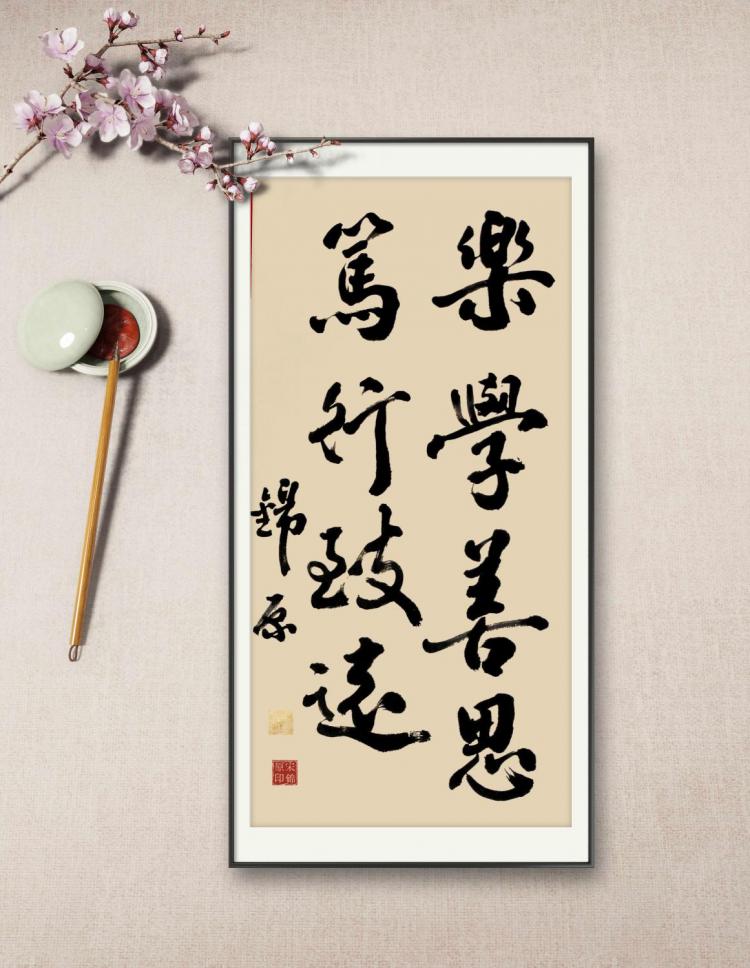 樂學善思
篤行致遠
錦原
宋錦
原印